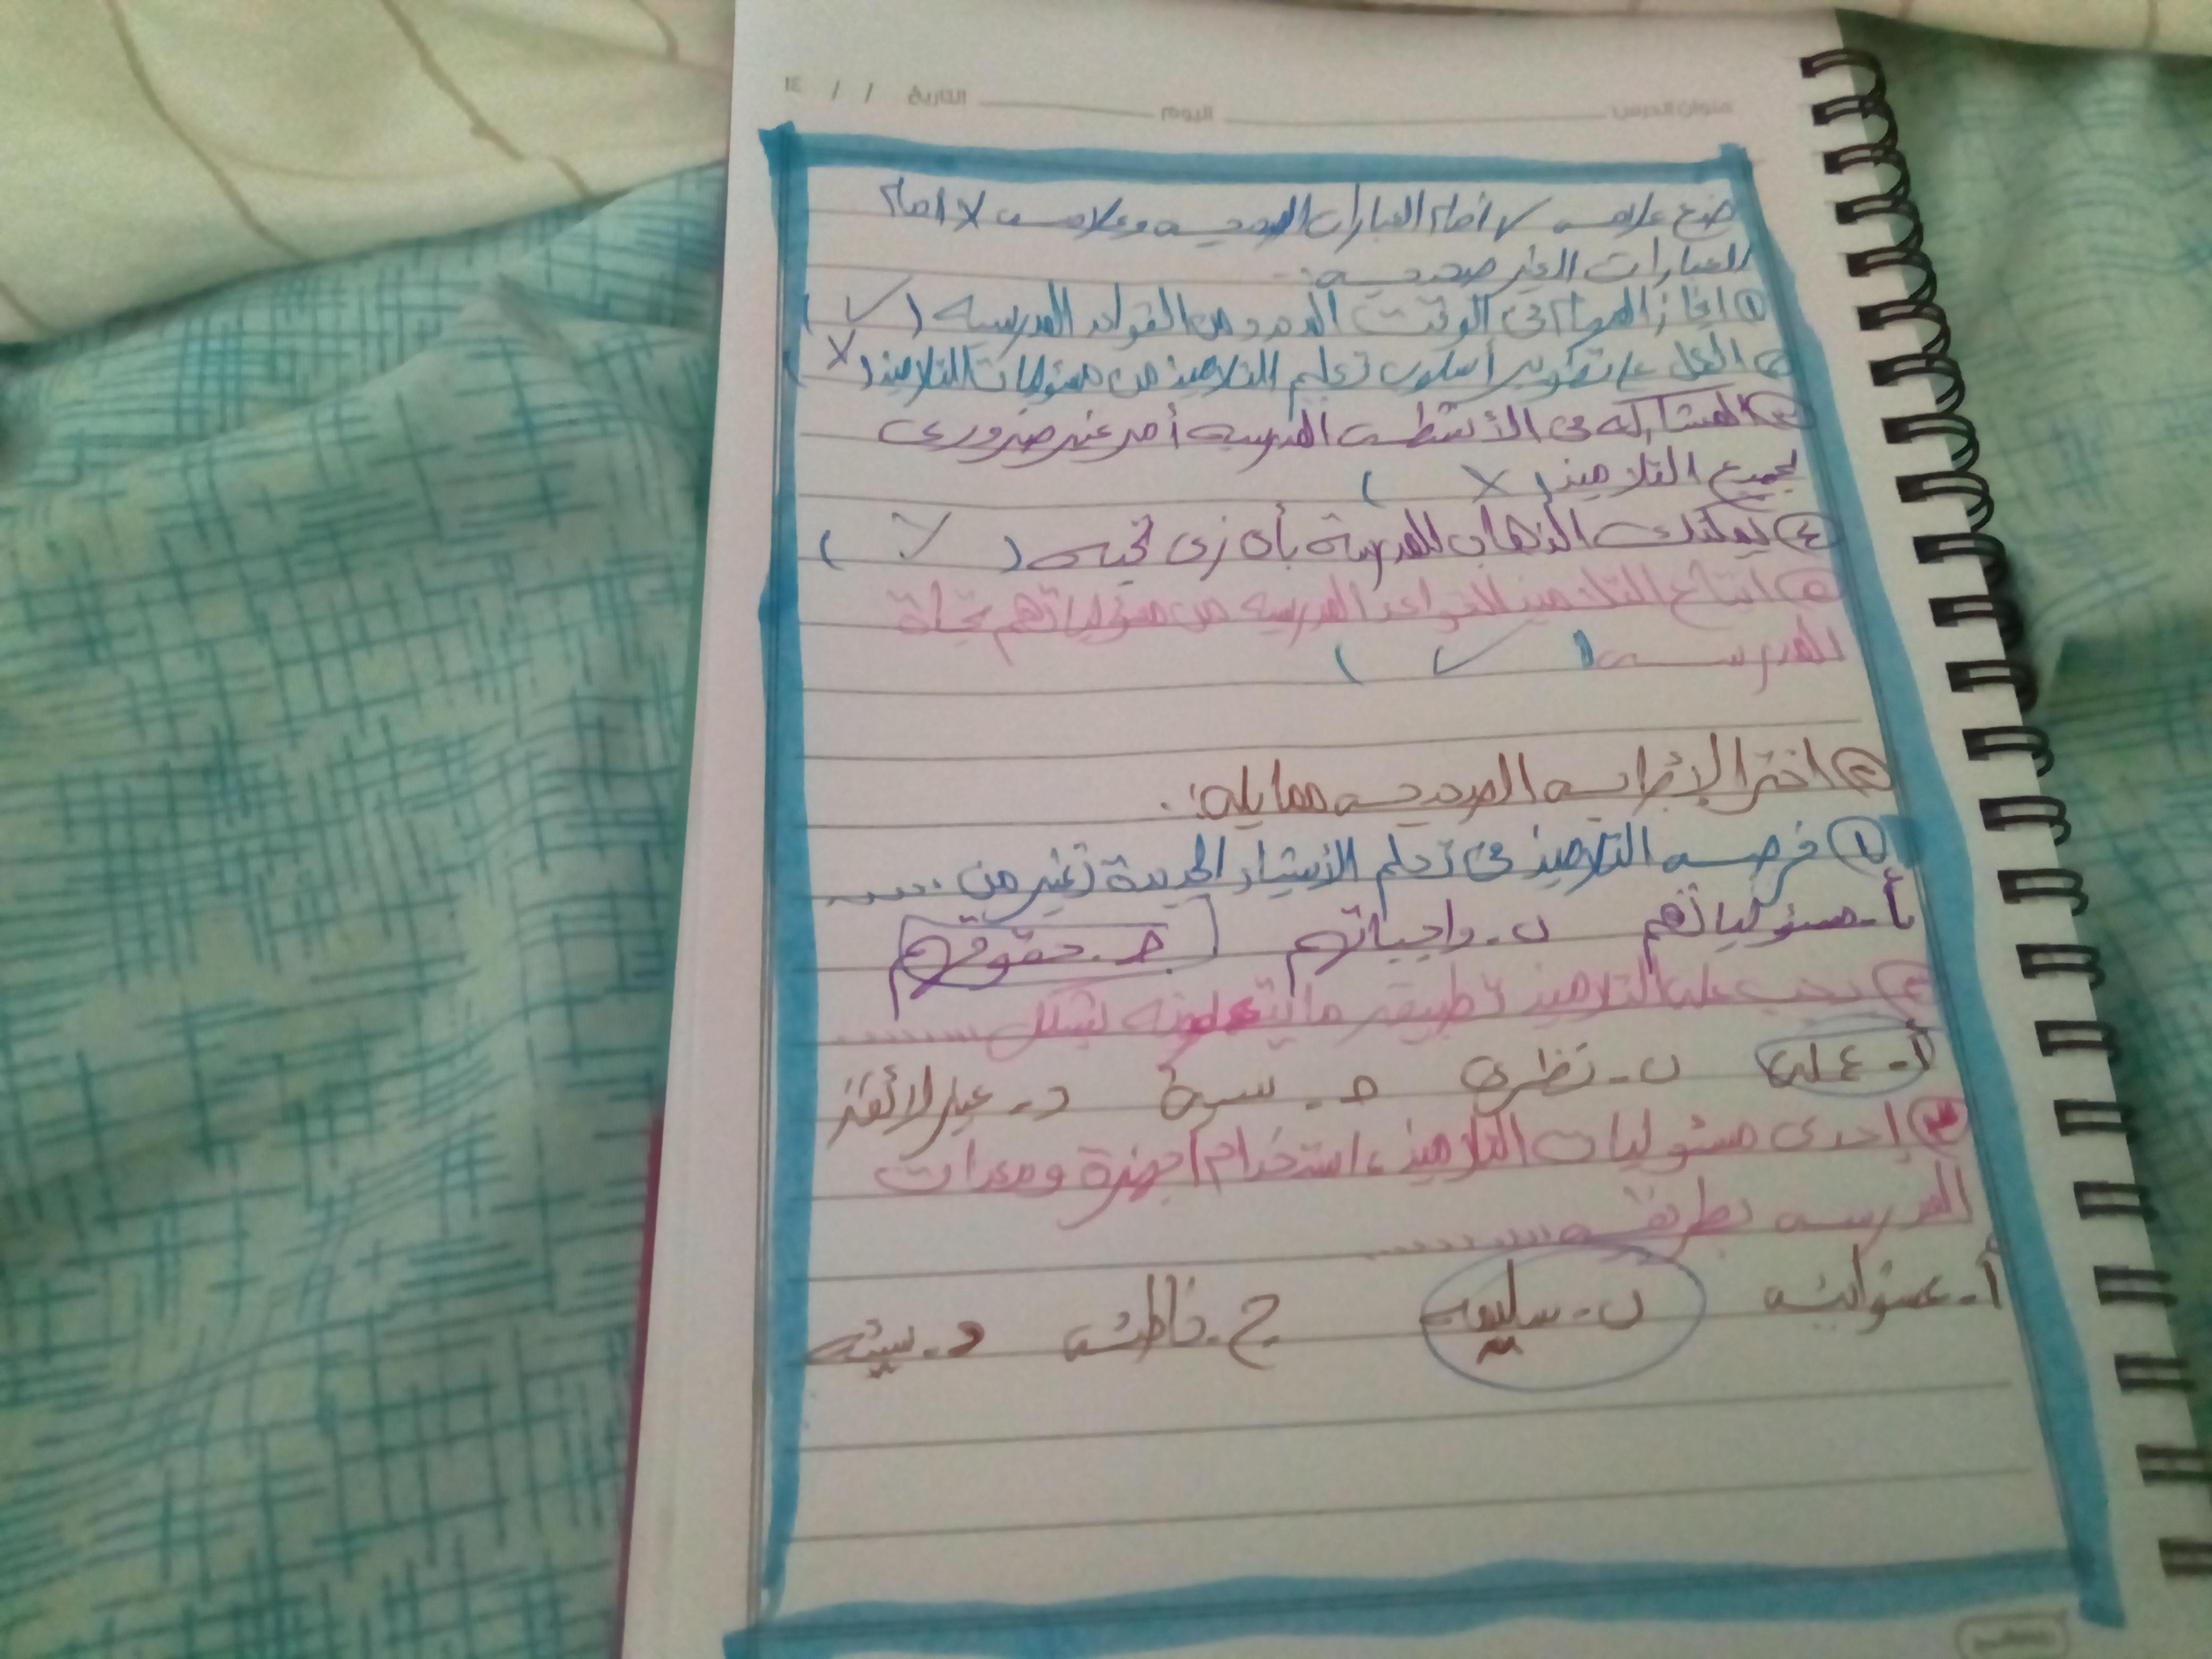 عنوان الدرس اليوم التاريخ / / ١٤
ضع علامه ✓ أمام العبارات الصحيحه وعلامه X امام
العبارات الغير صحيحه :-
① انجاز المهام في الوقت المحدد من القواعد المدرسيه (✓)
② العمل على تطوير أسلوب تعلم التلاميذ من مسئوليات التلاميذ (X)
③ المشاركه في الأنشطه المدرسيه أمر غير ضروري
لجميع التلاميذ (X)
④ يمكنك الذهاب للمدرسة بأي زي تحبه (X)
⑤ اتباع التلاميذ للقواعد المدرسيه من مسؤلياتهم تجاة
المدرسه (✓)
② اختر الإجابه الصحيحه مما يلي:
① فرصه التلاميذ في تعلم الأشياء الجديدة تعتبر من .....
أ- مسئولياتهم ب- واجباتهم ج- حقوقهم
② يجب على التلاميذ تطبيق ما يتعلمونه بشكل ......
أ- عملي ب- نظري ج- سيئ د- غير لائق
③ إحدى مسئوليات التلاميذ، استخدام اجهزة ومعدات
المدرسه بطريقه ......
أ- عشوائيه ب- سليمه ج- خاطئه د- سيئه